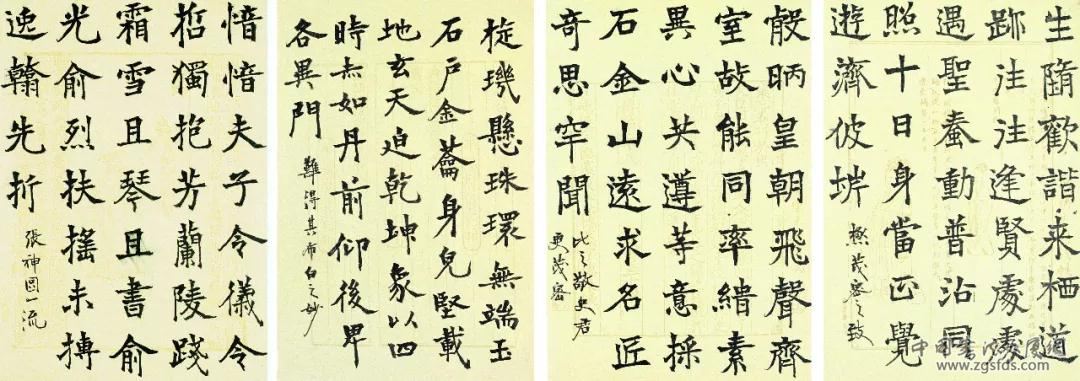 生隋歡諧来栖道
跡注注逢賢處處
遇聖蠢動普沾同
照十日身當正覺
遊濟彼
極茂密之致
殷昞皇朝飛聲齊
室故能同率緇素
異心共遵等意採
石金山遠求名匠
奇思罕聞
比之敬史君
更茂密
旋璣懸珠環無端玉
石户金籥身皃堅載
地玄天迫乾坤象以四
時赤如丹前仰後卑
各異門
難得其布白之妙
愔愔夫子令儀令
哲獨抱芳蘭陵踐
霜雪且琴且書俞
光俞烈扶搖未摶
逸翰先折
張神一流
www.zgsfds.com